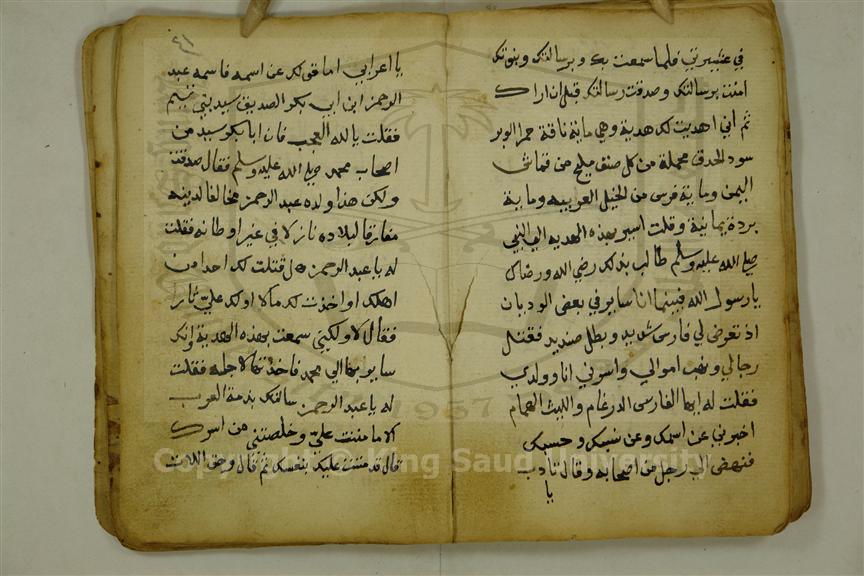 في عشيرتي فلما سمعت بك وبرسالتك وبنوتك
امنت برسالتك وصدقت رسالتك قبل ان اراك
ثم اني اهديت لك هدية وهي ماية ناقة حمر الوبر
سود الحدق محملة من كل صنف مليح من قماش
اليمن وماية فرس من الخيل العربيه وماية
بردة يمانية وقلت اسير بهذه الهديه الي النبي
صلي الله عليه وسلم طالب بذلك رضي الله ورضاك
يارسول الله فبينما انا ساير في بعض الوديان
اذ تعرض لي فارس شديد وبطل صنديد فقتل
رجالي ونهب اموالي واسرني انا وولدي
فقلت له ايها الفارس الدرغام والليث الهمام
اخبرني عن اسمك وعن نسبك وحسبك
فنهض الي رجل من اصحابه وقال تادب
يا
٤١
يا اعرابي اما تقول عن اسمه فاسمه عبد
الرحمن ابن ابي بكر الصديق سيد بني تيم
فقلت يا لله العجب فان ابا بكر سيد من
اصحاب محمد صلي الله عليه وسلم فقال صدقت
ولكن هذا ولده عبد الرحمن مخالفا لدينه
مفارقا لبلاده نازلا في غير اوطانه فقلت
له يا عبد الرحمن هل قتلت لك احدا من
اهلك او اخذت لك مالا او لك علي ثار
فقال لا ولكني سمعت بهذه الهدية وانك
ساير بها الي محمد فاخذتها لاجله فقلت
له يا عبد الرحمن سالتك بذمة العرب
الا ما مننت علي وخلصتني من اسرك
قال قد مننت عليك بنفسك ثم قال وحق اللات
1957
Copyright © King Saud University